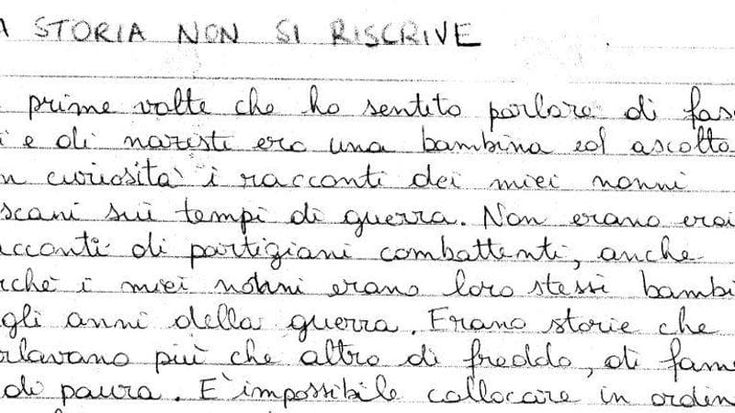 A STORIA NON SI RISCRIVE
prime volte che ho sentito parlare di fas
i e di nazisti ero una bambina ed ascolto
n curiosità i racconti dei miei nonni
scani sui tempi di guerra. Non erano eroi
cconti di partigiani combattenti, anche
rché i miei nonni erano loro stessi bambi
gli anni della guerra. Erano storie che
rlavano più che altro di freddo, di fame
di paura. E' impossibile collocare in ordin